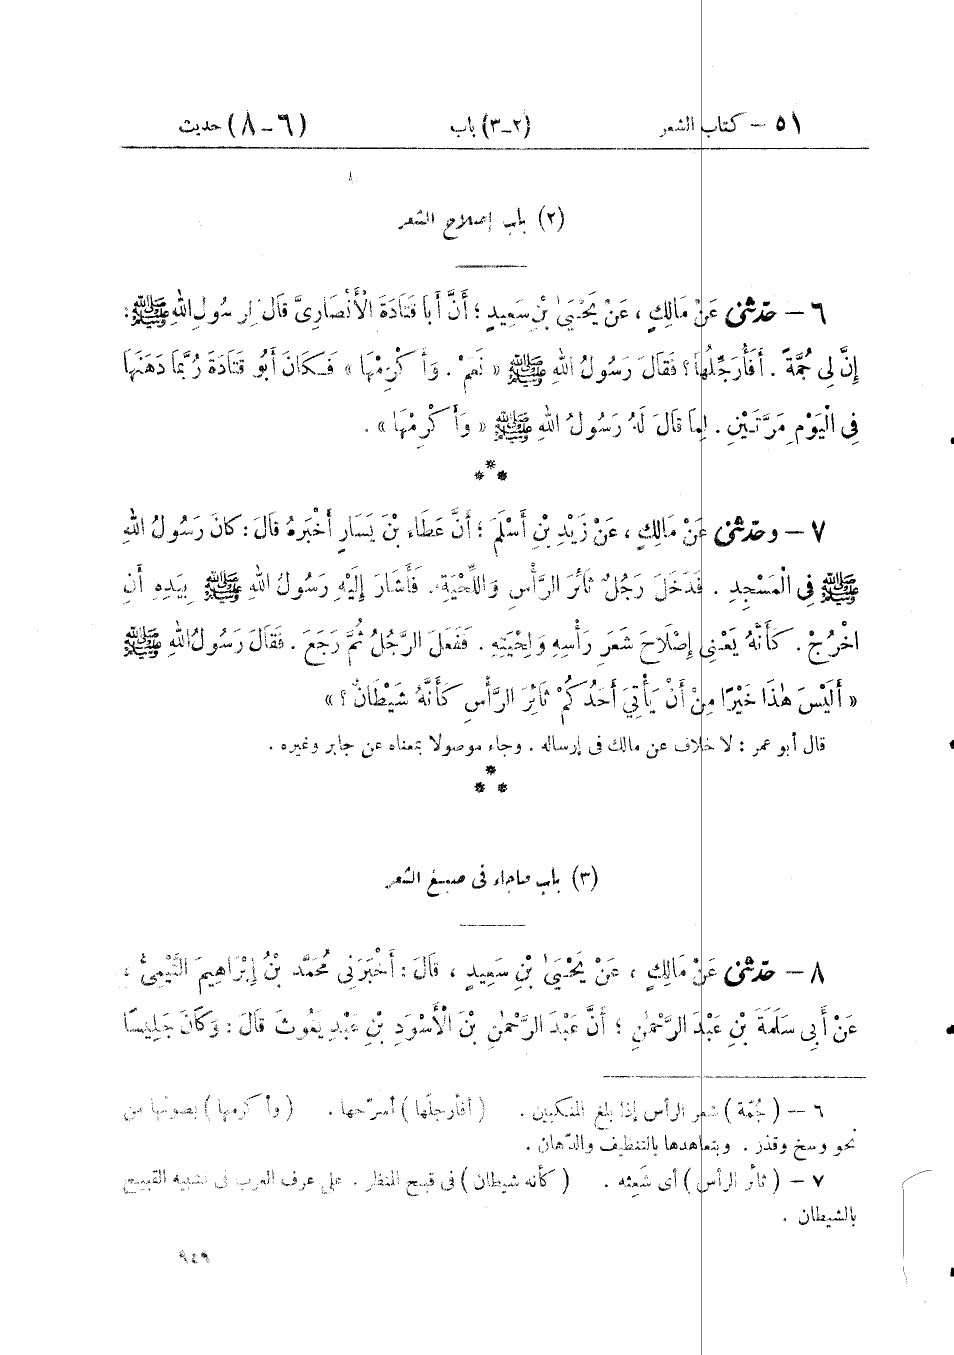 ٥١ – كتاب الشعر (٢-٣) باب (٦-٨) حديث
(٢) باب إصلاح الشعر
٦ – حَدّثنى عَنْ مَالِكٍ ، عَنْ يَحْيَىٰ بْنِ سَعِيدٍ ؛ أَنَّ أَبَا قَتَادَةَ الْأَنْصَارِىَّ قَالَ لِرَسُولِ اللهِ ﷺ :
إِنَّ لِي جُمَّةً . أَفَأُرَجِّلُهَا ؟ فَقَالَ رَسُولُ اللهِ ﷺ « نَعَمْ . وَأَكْرِمْهَا » فَكَانَ أَبُو قَتَادَةَ رُبَّمَا دَهَنَهَا
فِي الْيَوْمِ مَرَّتَيْنِ . لِمَا قَالَ لَهُ رَسُولُ اللهِ ﷺ « وَأَكْرِمْهَا » .
***
٧ – وحَدّثنى عَنْ مَالِكٍ ، عَنْ زَيْدِ بْنِ أَسْلَمَ ؛ أَنَّ عَطَاء بْنَ يَسَارٍ أَخْبَرَهُ قَالَ : كَانَ رَسُولُ اللهِ
ﷺ فِي الْمَسْجِدِ . فَدَخَلَ رَجُلٌ ثَائِرَ الرَّأْسِ وَاللِّحْيَةِ . فَأَشَارَ إِلَيْهِ رَسُولُ اللهِ ﷺ بِيَدِهِ أَنِ
اخْرُجْ . كَأَنَّهُ يَعْنِي إِصْلَاحَ شَعَرِ رَأْسِهِ وَلِحْيَتِهِ . فَفَعَلَ الرَّجُلُ ثُمَّ رَجَعَ . فَقَالَ رَسُولُ اللهِ ﷺ
« أَلَيْسَ هٰذَا خَيْرًا مِنْ أَنْ يَأْتِيَ أَحَدُكُمْ ثَائِرَ الرَّأْسِ كَأَنَّهُ شَيْطَانٌ ؟ »
قال أبو عمر : لا خلاف عن مالك فى إرساله . وجاء موصولا بمعناه عن جابر وغيره .
***
(٣) باب ماجاء فى صبغ الشعر
٨ – حَدّثنى عَنْ مَالِكٍ ، عَنْ يَحْيَىٰ بْنِ سَعِيدٍ ، قَالَ : أَخْبَرَنِي مُحَمَّدُ بْنُ إِبْرَاهِيمَ التَّيْمِيُّ ،
عَنْ أَبِي سَلَمَةَ بْنِ عَبْدِ الرَّحْمٰنِ ؛ أَنَّ عَبْدَ الرَّحْمٰنِ بْنَ الْأَسْوَدِ بْنِ عَبْدِ يَغُوثَ قَالَ : وَكَانَ جَلِيسًا
٦ – ( جُمّة ) شعر الرأس إذا بلغ المنكبين . ( أفأرجلها ) أسرّحها . ( وأكرمها ) بصونها من
نحو وسخ وقذر . وبتعاهدها بالتنظيف والدّهان .
٧ – ( ثائر الرأس ) أى شَعِثه . ( كأنه شيطان ) فى قبح المنظر . على عرف العرب فى تشبيه القبيح
بالشيطان .
٩٤٩